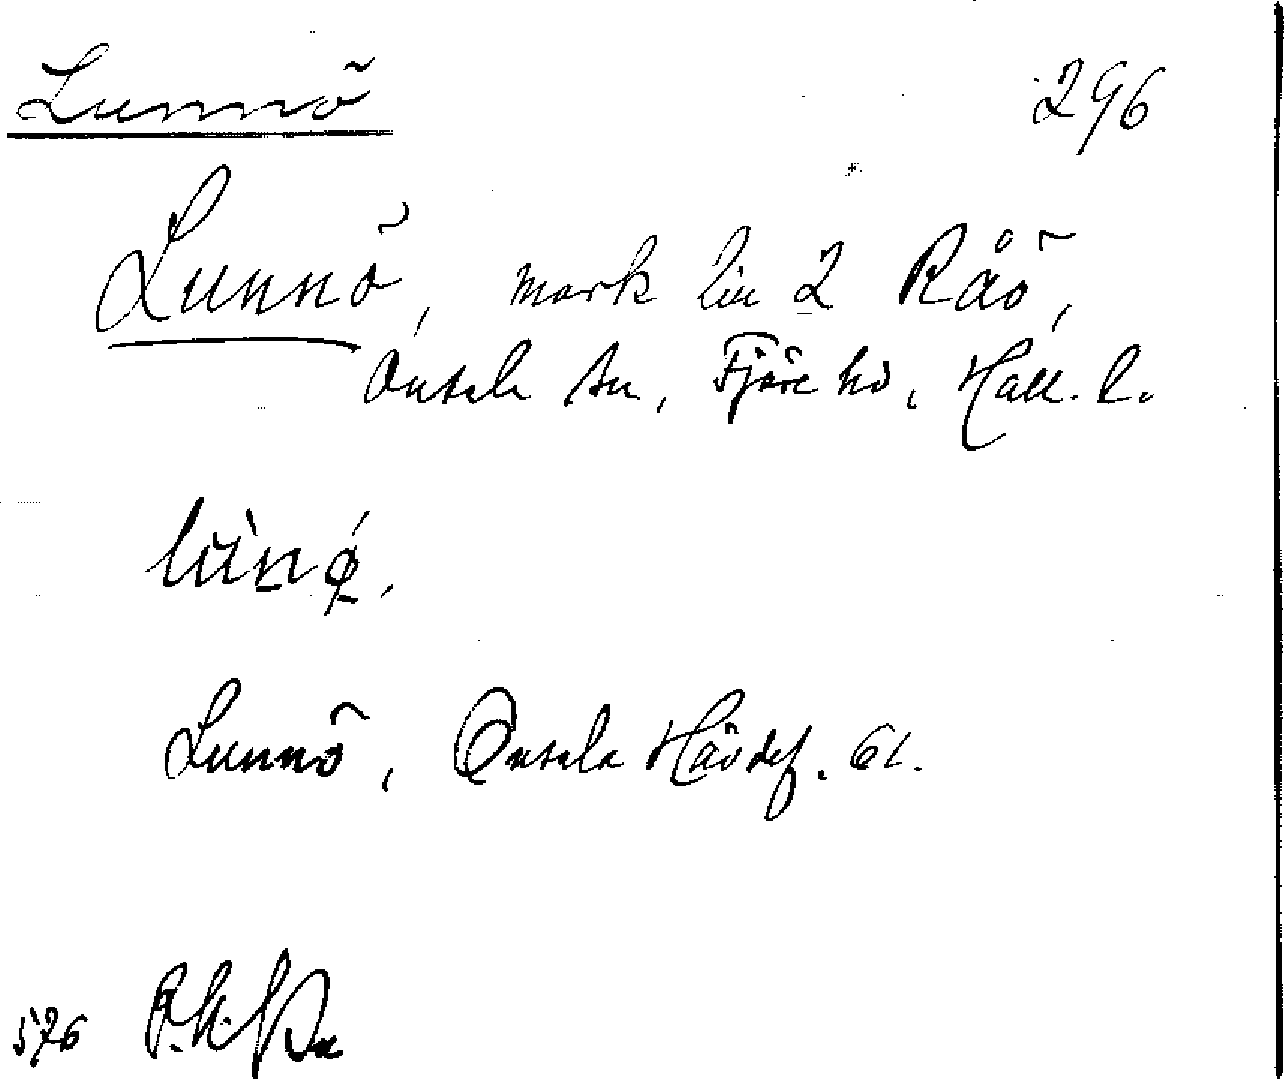 Lunnö 296
Lunnö, mark till 2 Råö,
Onsala sn, Fjäre hd, Hall. l.
Lunnö, Onsala Hävdef. 61.
576